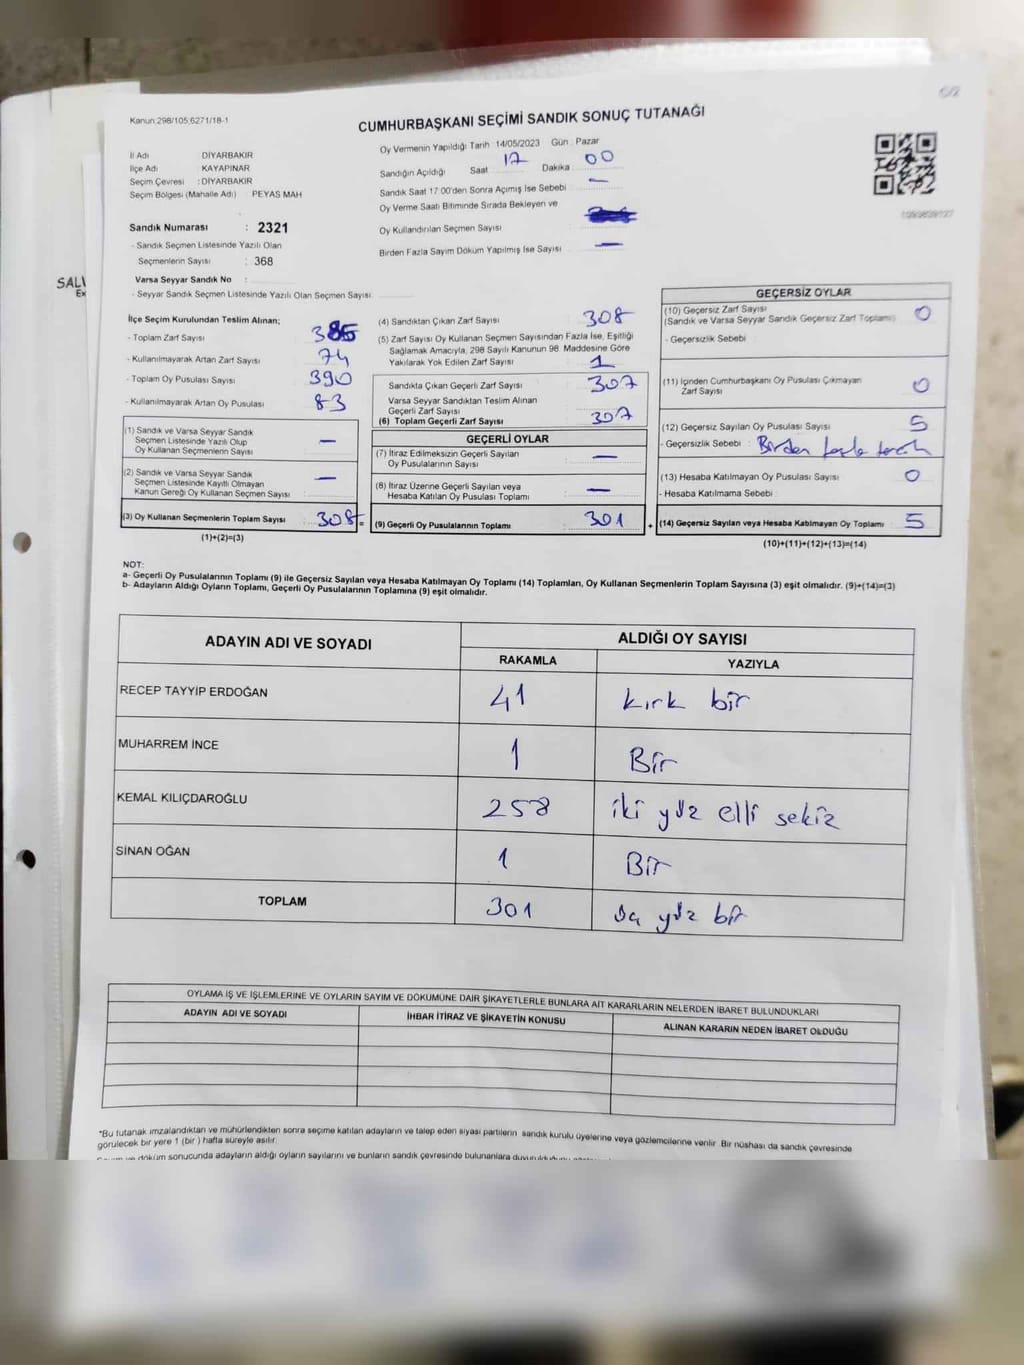 6/2
Kanun:298/105;6271/18-1
CUMHURBAŞKANI SEÇİMİ SANDIK SONUÇ TUTANAĞI
İl Adı : DİYARBAKIR
İlçe Adı : KAYAPINAR
Seçim Çevresi : DİYARBAKIR
Seçim Bölgesi (Mahalle Adı) : PEYAS MAH
Sandık Numarası : 2321
- Sandık Seçmen Listesinde Yazılı Olan
Seçmenlerin Sayısı : 368
Varsa Seyyar Sandık No :
- Seyyar Sandık Seçmen Listesinde Yazılı Olan Seçmen Sayısı:
Oy Vermenin Yapıldığı Tarih : 14/05/2023 Gün : Pazar
Sandığın Açıldığı Saat 17 Dakika : 00
Sandık Saat 17.00'den Sonra Açımış İse Sebebi : —
Oy Verme Saati Bitiminde Sırada Bekleyen ve
Oy Kullandırılan Seçmen Sayısı
Birden Fazla Sayım Döküm Yapılmış İse Sayısı : —
SAL
Ex
İlçe Seçim Kurulundan Teslim Alınan;
- Toplam Zarf Sayısı :
- Kullanılmayarak Artan Zarf Sayısı : 74
- Toplam Oy Pusulası Sayısı : 390
- Kullanılmayarak Artan Oy Pusulası : 83
(1) Sandık ve Varsa Seyyar Sandık
Seçmen Listesinde Yazılı Olup
Oy Kullanan Seçmenlerin Sayısı : —
(2) Sandık ve Varsa Seyyar Sandık
Seçmen Listesinde Kayıtlı Olmayan
Kanun Gereği Oy Kullanan Seçmen Sayısı : —
(3) Oy Kullanan Seçmenlerin Toplam Sayısı : 308 =
(1)+(2)=(3)
(4) Sandıktan Çıkan Zarf Sayısı : 308
(5) Zarf Sayısı Oy Kullanan Seçmen Sayısından Fazla İse, Eşitliği
Sağlamak Amacıyla, 298 Sayılı Kanunun 98. Maddesine Göre
Yakılarak Yok Edilen Zarf Sayısı : 1
Sandıkta Çıkan Geçerli Zarf Sayısı : 307
Varsa Seyyar Sandıktan Teslim Alınan
Geçerli Zarf Sayısı :
(6) Toplam Geçerli Zarf Sayısı : 307
GEÇERLİ OYLAR
(7) İtiraz Edilmeksizin Geçerli Sayılan
Oy Pusulalarının Sayısı : —
(8) İtiraz Üzerine Geçerli Sayılan veya
Hesaba Katılan Oy Pusulası Toplamı : —
(9) Geçerli Oy Pusulalarının Toplamı : 301 +
GEÇERSİZ OYLAR
(10) Geçersiz Zarf Sayısı
(Sandık ve Varsa Seyyar Sandık Geçersiz Zarf Toplamı) : 0
- Geçersizlik Sebebi :
(11) İçinden Cumhurbaşkanı Oy Pusulası Çıkmayan
Zarf Sayısı : 0
(12) Geçersiz Sayılan Oy Pusulası Sayısı : 5
- Geçersizlik Sebebi : Birden fazla tercih
(13) Hesaba Katılmayan Oy Pusulası Sayısı : 0
- Hesaba Katılmama Sebebi :
(14) Geçersiz Sayılan veya Hesaba Katılmayan Oy Toplamı : 5
(10)+(11)+(12)+(13)=(14)
NOT:
a- Geçerli Oy Pusulalarının Toplamı (9) ile Geçersiz Sayılan veya Hesaba Katılmayan Oy Toplamı (14) Toplamları, Oy Kullanan Seçmenlerin Toplam Sayısına (3) eşit olmalıdır. (9)+(14)=(3)
b- Adayların Aldığı Oyların Toplamı, Geçerli Oy Pusulalarının Toplamına (9) eşit olmalıdır.
ADAYIN ADI VE SOYADI ALDIĞI OY SAYISI
RAKAMLA YAZIYLA
RECEP TAYYİP ERDOĞAN 41 kırk bir
MUHARREM İNCE 1 Bir
KEMAL KILIÇDAROĞLU 258 iki yüz elli sekiz
SİNAN OĞAN 1 Bir
TOPLAM 301 üç yüz bir
OYLAMA İŞ VE İŞLEMLERİNE VE OYLARIN SAYIM VE DÖKÜMÜNE DAİR ŞİKAYETLERLE BUNLARA AİT KARARLARIN NELERDEN İBARET BULUNDUKLARI
ADAYIN ADI VE SOYADI İHBAR İTİRAZ VE ŞİKAYETİN KONUSU ALINAN KARARIN NEDEN İBARET OLDUĞU
*Bu tutanak imzalandıktan ve mühürlendikten sonra seçime katılan adayların ve talep eden siyasi partilerin sandık kurulu üyelerine veya gözlemcilerine verilir. Bir nüshası da sandık çevresinde
görülecek bir yere 1 (bir) hafta süreyle asılır.
Sayım ve döküm sonucunda adayların aldığı oyların sayılarını ve bunların sandık çevresinde bulunanlara duyurulduğunu